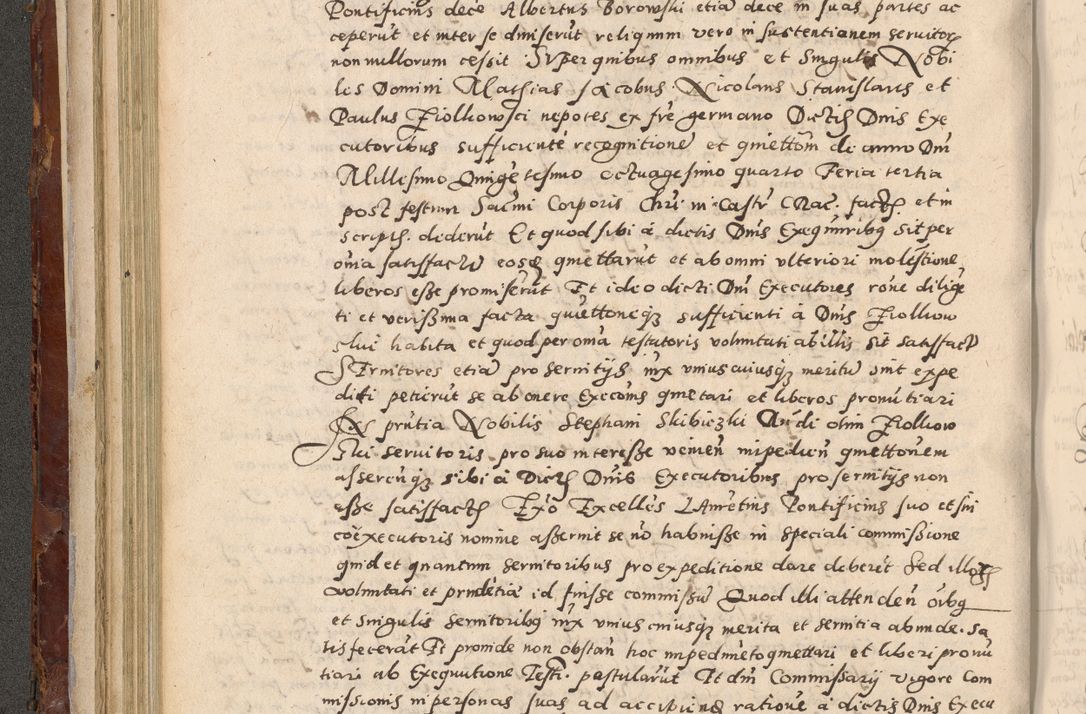 Pontificius dece Albertus Borowski etiā dece in suas partes ac
ceperūt et inter se diuiserūt reliquum vero in sustentianem seruitor
nonnullorum cessit Super quibus omnibus et Singulis Nobi
les Domini Mathias Jacobus Nicolaus Stanislaus et
Paulus Ziolkowsci nepotes ex frē germano Dictis Dnis Exe
cutoribus sufficientē recognitionē et quiettom de anno Dni
Millesimo Quingētesimo octuagesimo quarto Feria tertia
post festum Sacmi Corporis Chri in Castr Crac. factas et in
scriptis dederūt Et quod sibi a dictis Dnis Exequtribq sit per
oīa satisfactū eosq quiettarūt et ab omni vlteriori molestione
liberos esse promiserūt Et ideo dicti Dni Executores rōne dilige
ti et verissima facta quiettoneq sufficienti a Dnis Ziolkow
skui habita et quod per omīa testatoris voluntati ab illis sit satisfact
Seruitores etiā pro seruitijs iux vnius cuiusq meritū sint expe
diti petierūt se ab onere Execōnis quietari et liberos pronūtiari
In prūtia Nobilis Stephani Skibiczki Qudi olim Ziolkow
Skui seruitoris pro suo interesse venien impedien quiettonem
asserenq sibi a Dictis Dnis Executoribus pro seruitijs non
esse satisfactū Exo Excellēs Laurētius Pontificius suo et sui
coexecutoris nomine asseruit se nō habuisse in speciali commissione
quid et quantum seruitoribus pro expeditione dare deberēt Sed illor
voluntati et prudētiæ id fuisse commissū Quod illi attenden oībq
et singulis seruitoribq iux vnius cuiusq merita et seruitia abunde sa
tisfecerāt Et proinde non obstan hoc impedimēto quiettari et liberi pronū
tiari ab Exequutione Testi. postularūt Et dni Commissarij vigore Com
missionis in personas suas ad accipiend rationē a dictis Dnis Execu